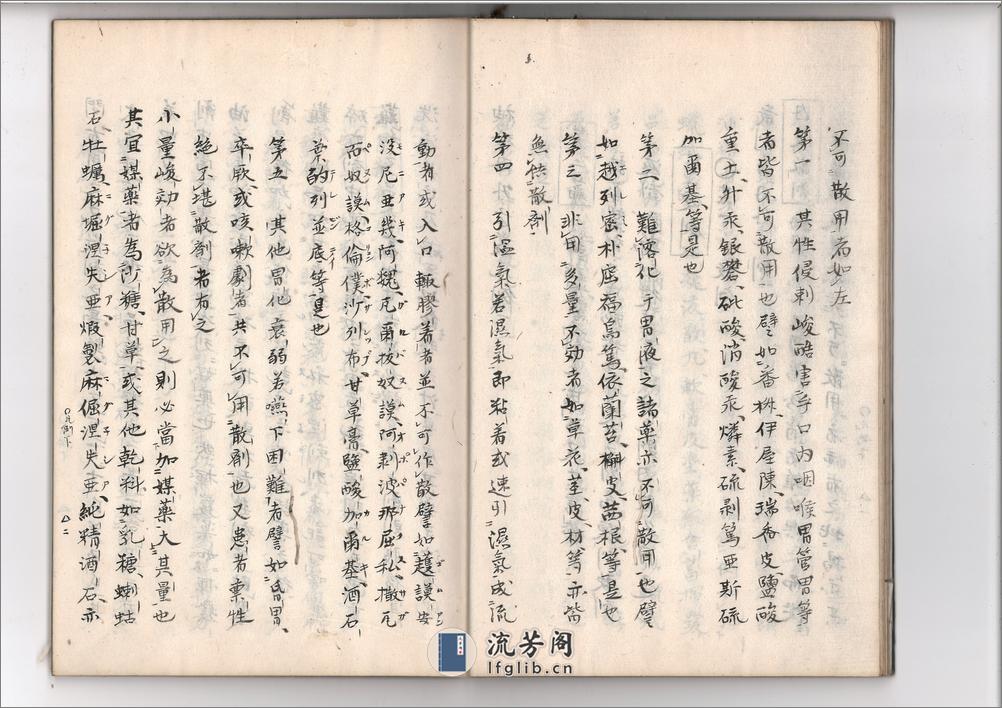 不可散用者如左
第一 其性侵刺峻酷害乎口内咽喉胃管胃等
者皆不可散用也譬如番椒、伊屋陳、瑞香皮鹽酸
重土、升汞、銀礬、砒酸、消酸汞、燐素、硫剥篤亜斯硫
加爾基等是也
第二 難溶化于胃液之諸藥亦不可散用也譬
如越列密朴屈福烏篤、依蘭苔、槲皮、茜根、等是也
第三 非用多量不効者如草花、茎、皮、材等亦皆
無供散剤
第四 引湿氣若濕氣即粘着或速引濕氣成流
動者或入口輙膠着者並不可作散譬如護謨安
没尼亜幾、阿魏、瓦爾抜奴謨、阿剥波那屈私、撒瓦
而奴謨、格倫僕、沙列布、甘草膏鹽酸加爾基、酒石
葉的列並底等是也
第五 其他胃化衰弱若嚥下困難者譬如昏冒、
卒厥或咳嗽劇者共不可用散剤也又患者稟性
絶不堪散剤者有之
小量峻効者欲為散用之則必當加媒藥大其量也
其宜媒藥者為沙糖、甘草、或其他乾料如乳糖、蝲蛄
石、牡蠣、麻堀涅失亜、煆製麻倔涅失亜、純精酒石、亦
流芳阁
lfglib.cn